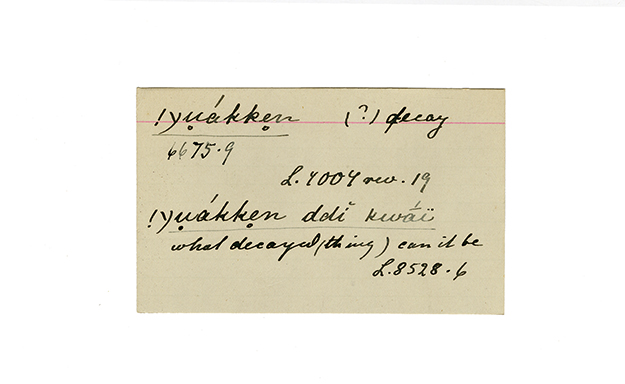 !)ụákkẹn (?) decay
6675.9
L.4004 rev. 19
!)ụákkẹn ddĭ́ kwáï
what decayed (thing) can it be
L.8528.6